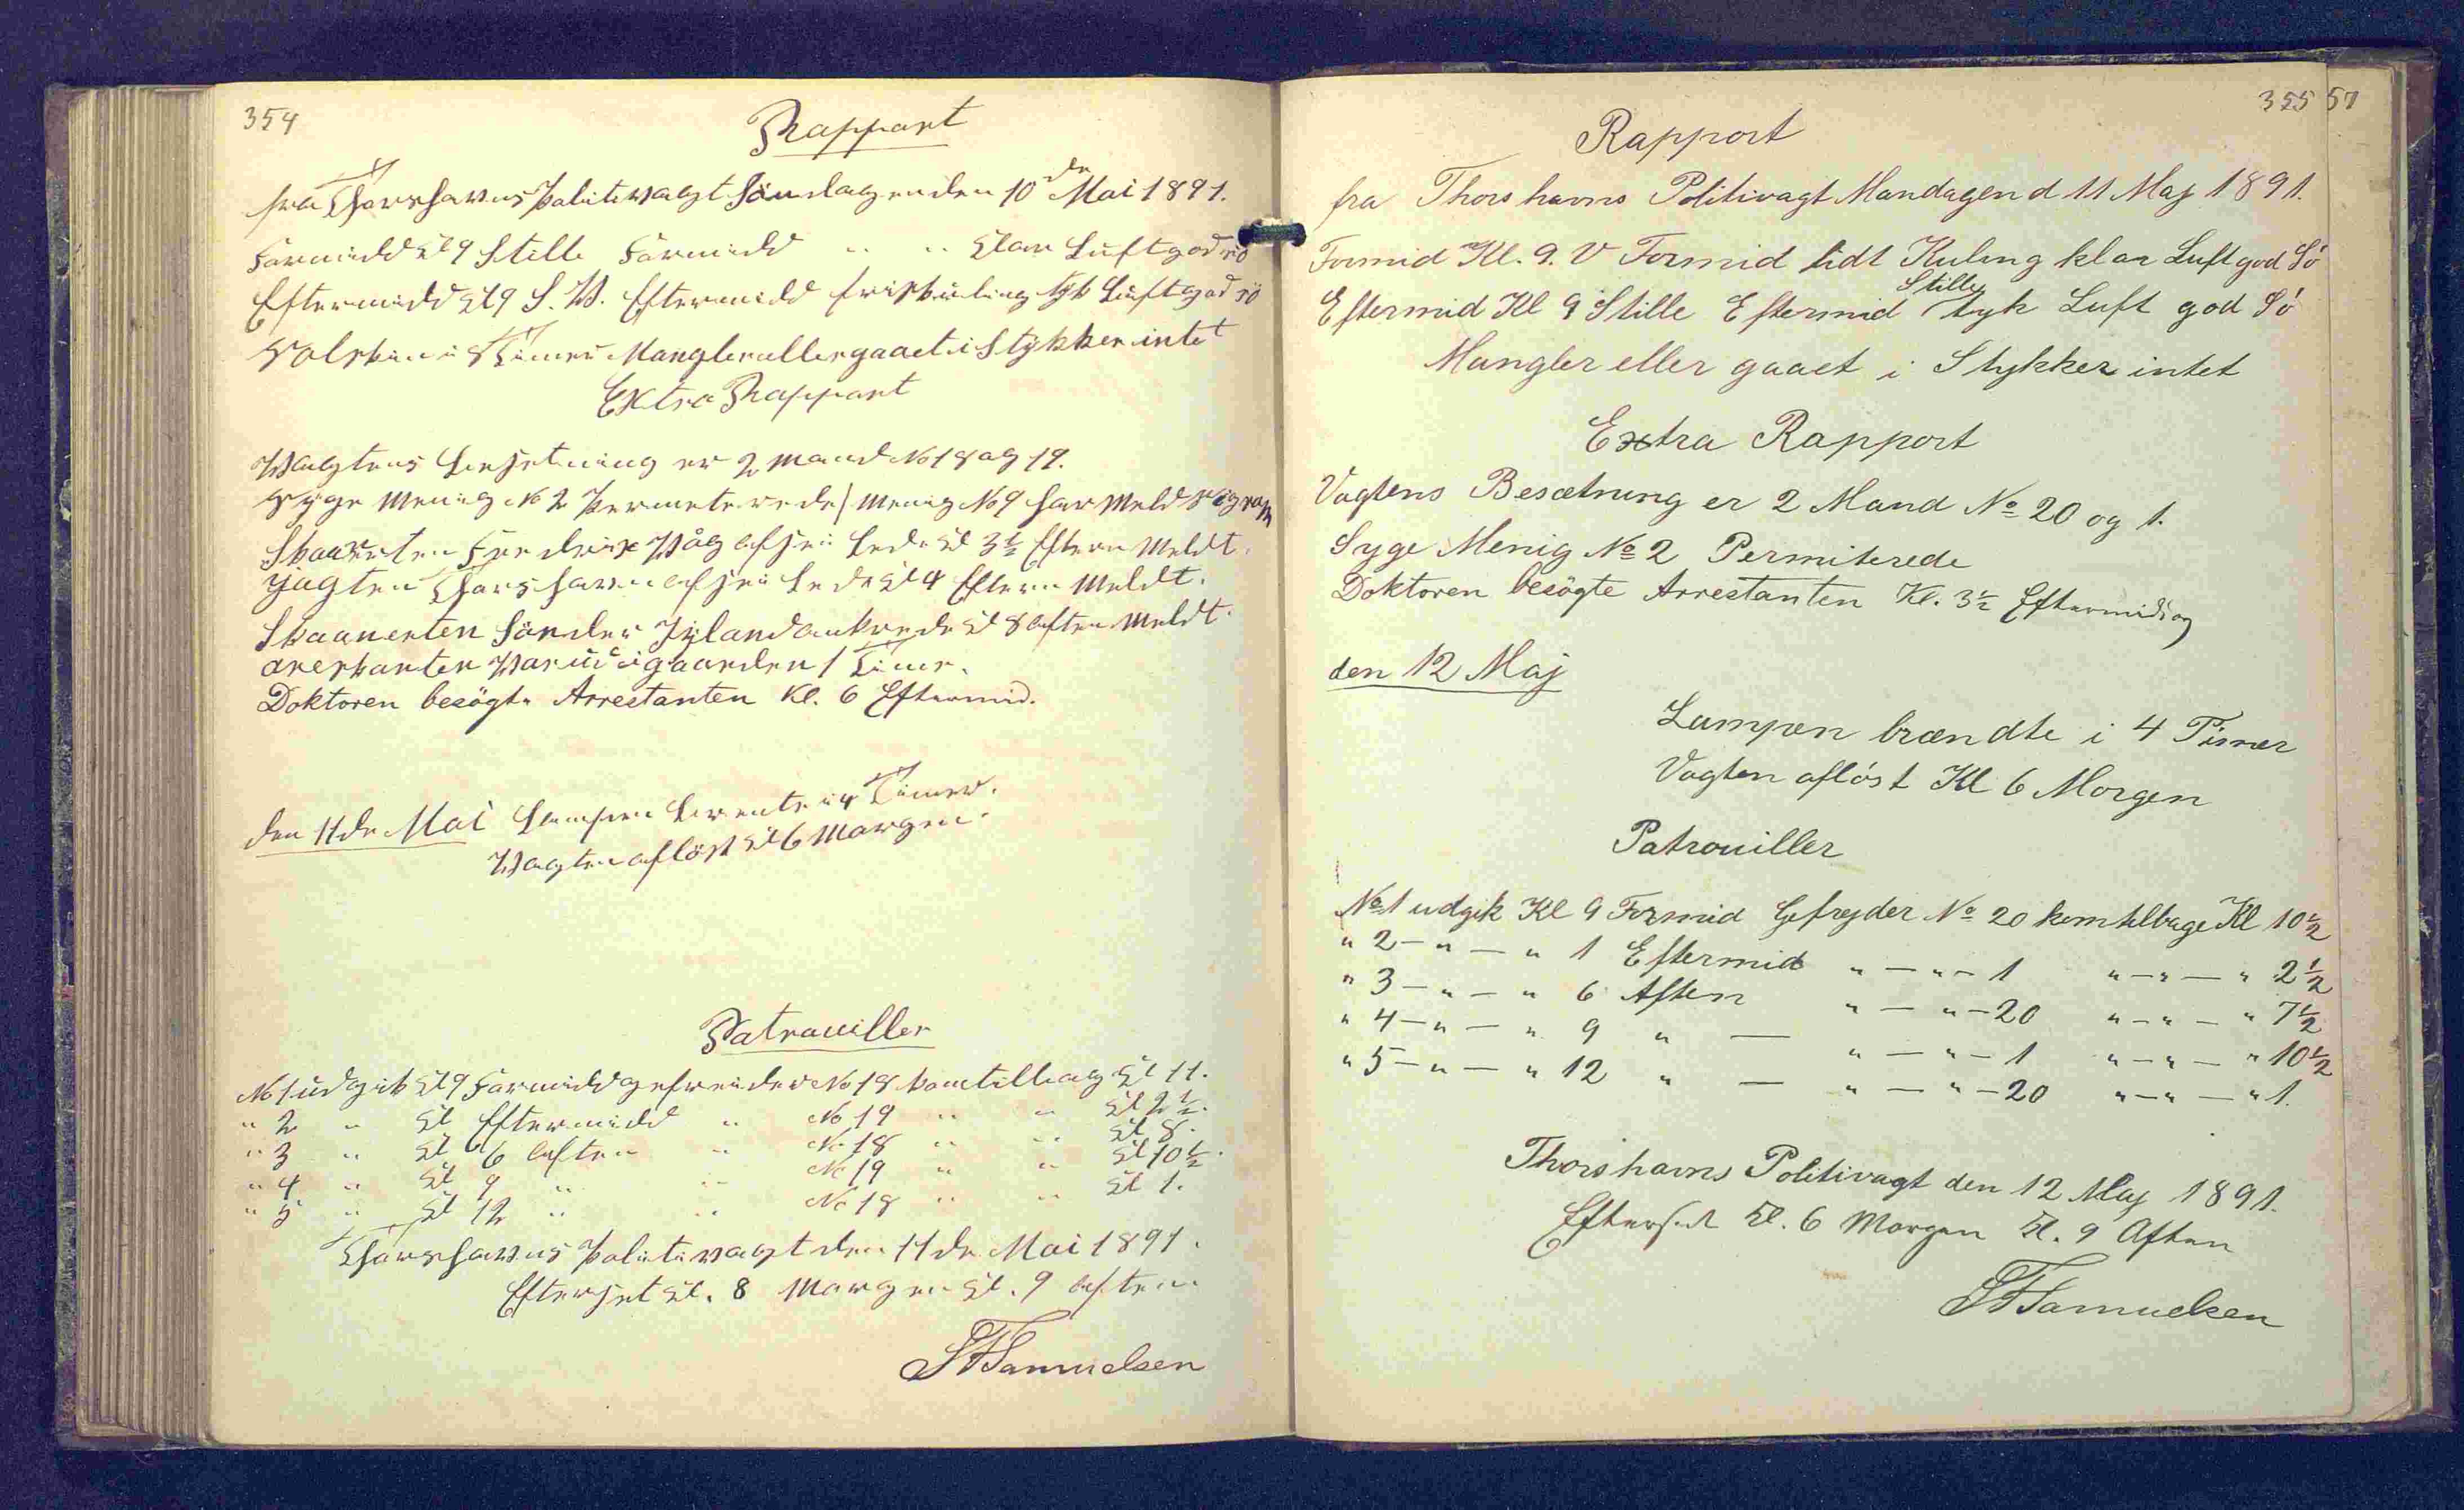 354
Rapport
fra Thorshavns Politivagt Söndagen den 10de Mai 1891.
Formidd Kl 9 Stille Formidd " " Klar Luft god sö
Eftermidd Kl 9 S. W. Eftermidd frisk kuling tyk Luft god sö
Solskin i Timer Mangler eller gaaet i Stykker intet
Extra Rapport
Wagtens besetning er 2 mand No 18 og 19.
Syge Menig No 2 Permeterede / Menig No 9 har Meldt sig rask
Skonerten Fredrix Wåg afseilede Kl 3½ Efterm Meldt.
Jagten Thorshavn afseilede Kl 4 Efterm Meldt.
Skonnerten Sönder Jylland ankrede Kl 8 Aften Meldt.
Arestanten War ud i gaarden 1 Time.
Doktoren besögte Arrestanten Kl. 6 Eftermid.
den 11de Mai Lampen brente i 4 Timer.
Wagten aflöst Kl 6 Morgen.
Patrouiller
No 1 udgik Kl 9 Formidd gefreider No 18 kom tilbag Kl 11.
" 2 " Kl Eftermidd " No 19 " " Kl 2½.
" 3 " Kl 6 Aften " No 18 " " Kl 8.
" 4 " Kl 9 " " No 19 " " Kl 10½.
" 5 " Kl 12 " " No 18 " " Kl 1.
Thorshavns Politivagt den 11de Mai 1891.
Efterset Kl. 8 Morgen Kl. 9 Aften
Samuelsen
355 57
Rapport
fra Thorshavns Politivagt Mandagen d 11 Maj 1891.
Formid Kl. 9. V Formid lidt Kuling klar Luft god Sö
Stille
Eftermid Kl 9 Stille Eftermid tyk Luft god Sö
Mangler eller gaaet i Stykker intet
Extra Rapport
Vagtens Besætning er 2 Mand No 20 og 1.
Syge Menig No 2 Permiterede
Doktoren besögte Arrestanten Kl. 3½ Eftermiddag
den 12 Maj
Lampen brændte i 4 Timer
Vagten aflöst Kl 6 Morgen
Patrouiller
No 1 udgik Kl 9 Formid Gefrejder No 20 kom tilbage Kl 10½
" 2 - " - " 1 Eftermid " - " - 1 " - " - " 2½
" 3 - " - " 6 Aften " - " - 20 " - " - " 7½
" 4 - " - " 9 " - " - " - 1 " - " - " 10½
" 5 - " - " 12 " - " - " - 20 " - " - " 1.
Thorshavns Politivagt den 12 Maj 1891.
Efterset Kl. 6 Morgen Kl. 9 Aften
Samuelsen